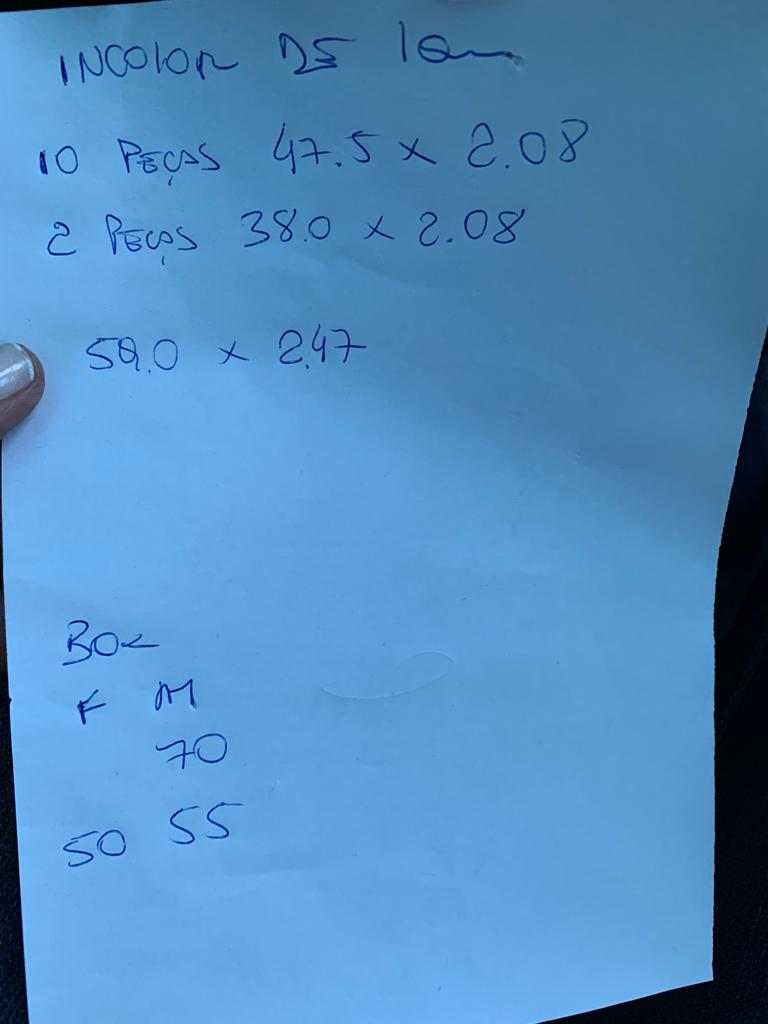 INCOLOR DE
10 PEÇAS 47.5 x 2.08
2 PEÇAS 38.0 x 2.08
59.0 x 2.47
BOX
F M
70
50 55